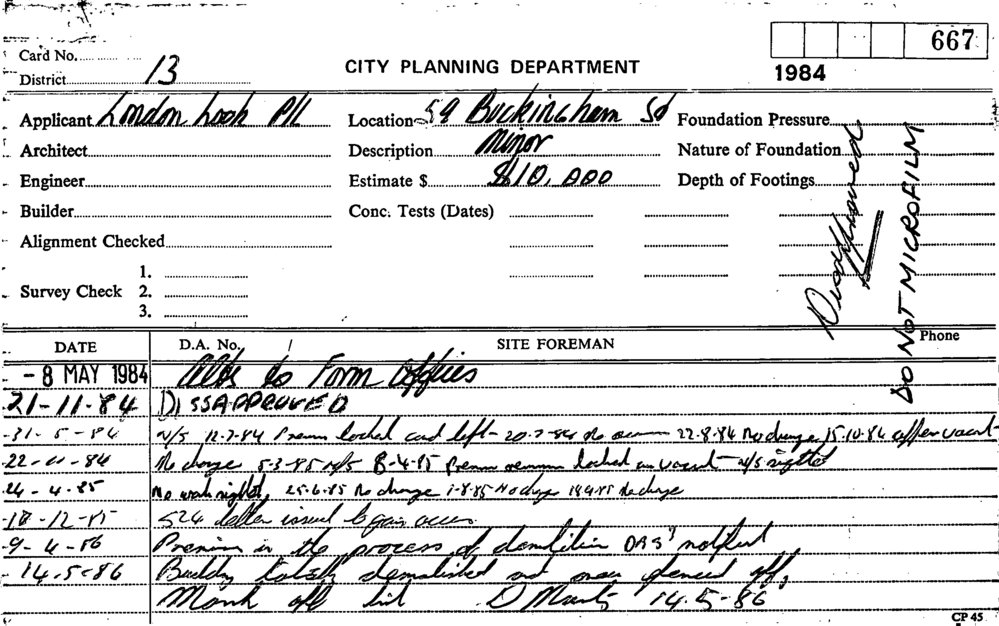 667
Card No.
CITY PLANNING DEPARTMENT
1984
District 13
Applicant London Look P/L Location 59 Buckingham St Foundation Pressure
Architect Description Minor Nature of Foundation
Engineer Estimate $ $10,000 Depth of Footings
Builder Conc. Tests (Dates)
Alignment Checked
1.
Survey Check 2.
3.
Dissapproved
DO NOT MICROFILM
DATE D.A. No. / SITE FOREMAN Phone
- 8 MAY 1984 Alts to Form Offices
21-11-84 DISSAPPROVED
31-5-84 N/S 12-7-84 Prem locked card left - 20-7-84 No 22-8-84 No change 15.10.84 vacant
22-11-84 No change 5-3-85 N/S 8-4-85 Prem locked vacant n/s sighted
24-4-85 No work sighted, 25-6-85 No change 1-8-85 No change No change
12-85 524 letter issued to gain
9-4-86 Premises in the process of demolition notified
14.5-86 Building totally demolished and now fenced off,
Mark off list D 14-5-86
CP 45